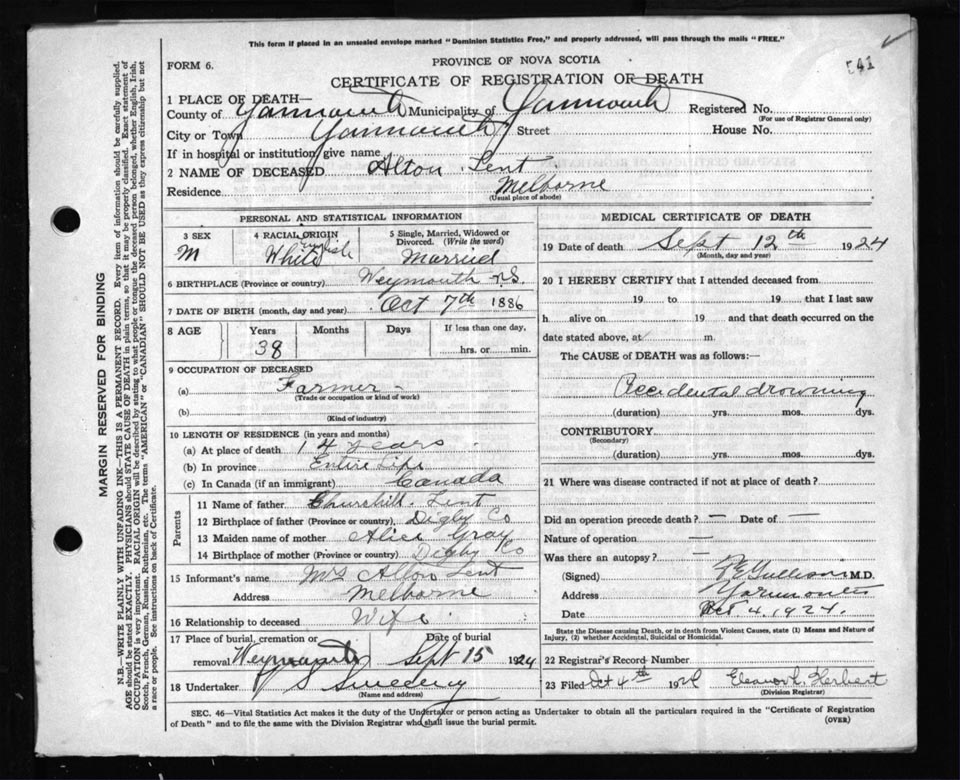 This form if placed in an unsealed envelope marked "Dominion Statistics Free," and properly addressed, will pass through the mails "FREE."
FORM 6.
PROVINCE OF NOVA SCOTIA
CERTIFICATE OF REGISTRATION OF DEATH
541
1 PLACE OF DEATH—
County of Yarmouth Municipality of Yarmouth Registered No.
(For use of Registrar General only)
City or Town Yarmouth Street House No.
If in hospital or institution, give name
2 NAME OF DECEASED Alton Lent
Residence Melborne
(Usual place of abode)
PERSONAL AND STATISTICAL INFORMATION
3 SEX 4 RACIAL ORIGIN 5 Single, Married, Widowed or Divorced. (Write the word)
M White Married
6 BIRTHPLACE (Province or country) Weymouth N.S.
7 DATE OF BIRTH (month, day and year) Oct 7th 1886
8 AGE Years Months Days If less than one day,
38 hrs. or min.
9 OCCUPATION OF DECEASED
(a) Farmer -
(Trade or occupation or kind of work)
(b)
(Kind of industry)
10 LENGTH OF RESIDENCE (in years and months)
(a) At place of death 14 years
(b) In province Entire Life
(c) In Canada (if an immigrant) Canada
Parents
11 Name of father Churchill Lent
12 Birthplace of father (Province or country) Digby Co
13 Maiden name of mother Alice Gray
14 Birthplace of mother (Province or country) Digby Co
15 Informant's name Mrs Alton Lent
Address Melborne
16 Relationship to deceased Wife
17 Place of burial, cremation or removal Weymouth Date of burial Sept 15 1924
18 Undertaker V S Sweeny
(Name and address)
MEDICAL CERTIFICATE OF DEATH
19 Date of death Sept 12th 1924
(Month, day and year)
20 I HEREBY CERTIFY that I attended deceased from
19 to 19 that I last saw
h alive on 19 and that death occurred on
date stated above, at m.
The CAUSE of DEATH was as follows:
Accidental drowning
(duration) yrs. mos. dys.
CONTRIBUTORY
(Secondary)
(duration) yrs. mos. dys.
21 Where was disease contracted if not at place of death?
Did an operation precede death? — Date of —
Nature of operation —
Was there an autopsy? —
(Signed) M.D.
Address Yarmouth
Date Oct 4, 1924.
State the Disease causing Death, or in death from Violent Causes, state (1) Means and Nature of Injury, (2) whether Accidental, Suicidal or Homicidal.
22 Registrar's Record Number
23 Filed Oct 4th 1924 Eleanor L. Herbert
(Division Registrar)
SEC. 46—Vital Statistics Act makes it the duty of the Undertaker or person acting as Undertaker to obtain all the particulars required in the "Certificate of Registration
of Death" and to file the same with the Division Registrar who shall issue the burial permit.
(OVER)
MARGIN RESERVED FOR BINDING
N.B.—WRITE PLAINLY WITH UNFADING INK—THIS IS A PERMANENT RECORD. Every item of information should be carefully supplied.
AGE should be stated EXACTLY. PHYSICIANS should STATE CAUSE OF DEATH in plain terms, so that it may be properly classified. Exact statement of
OCCUPATION is very important. RACIAL ORIGIN will be described by stating to what people or tongue the deceased person belonged, whether English, Irish,
Scotch, French, German, Russian, Ruthenian, etc. The terms "AMERICAN" or "CANADIAN" SHOULD NOT BE USED as they express citizenship but not
a race or people. See instructions on back of Certificate.